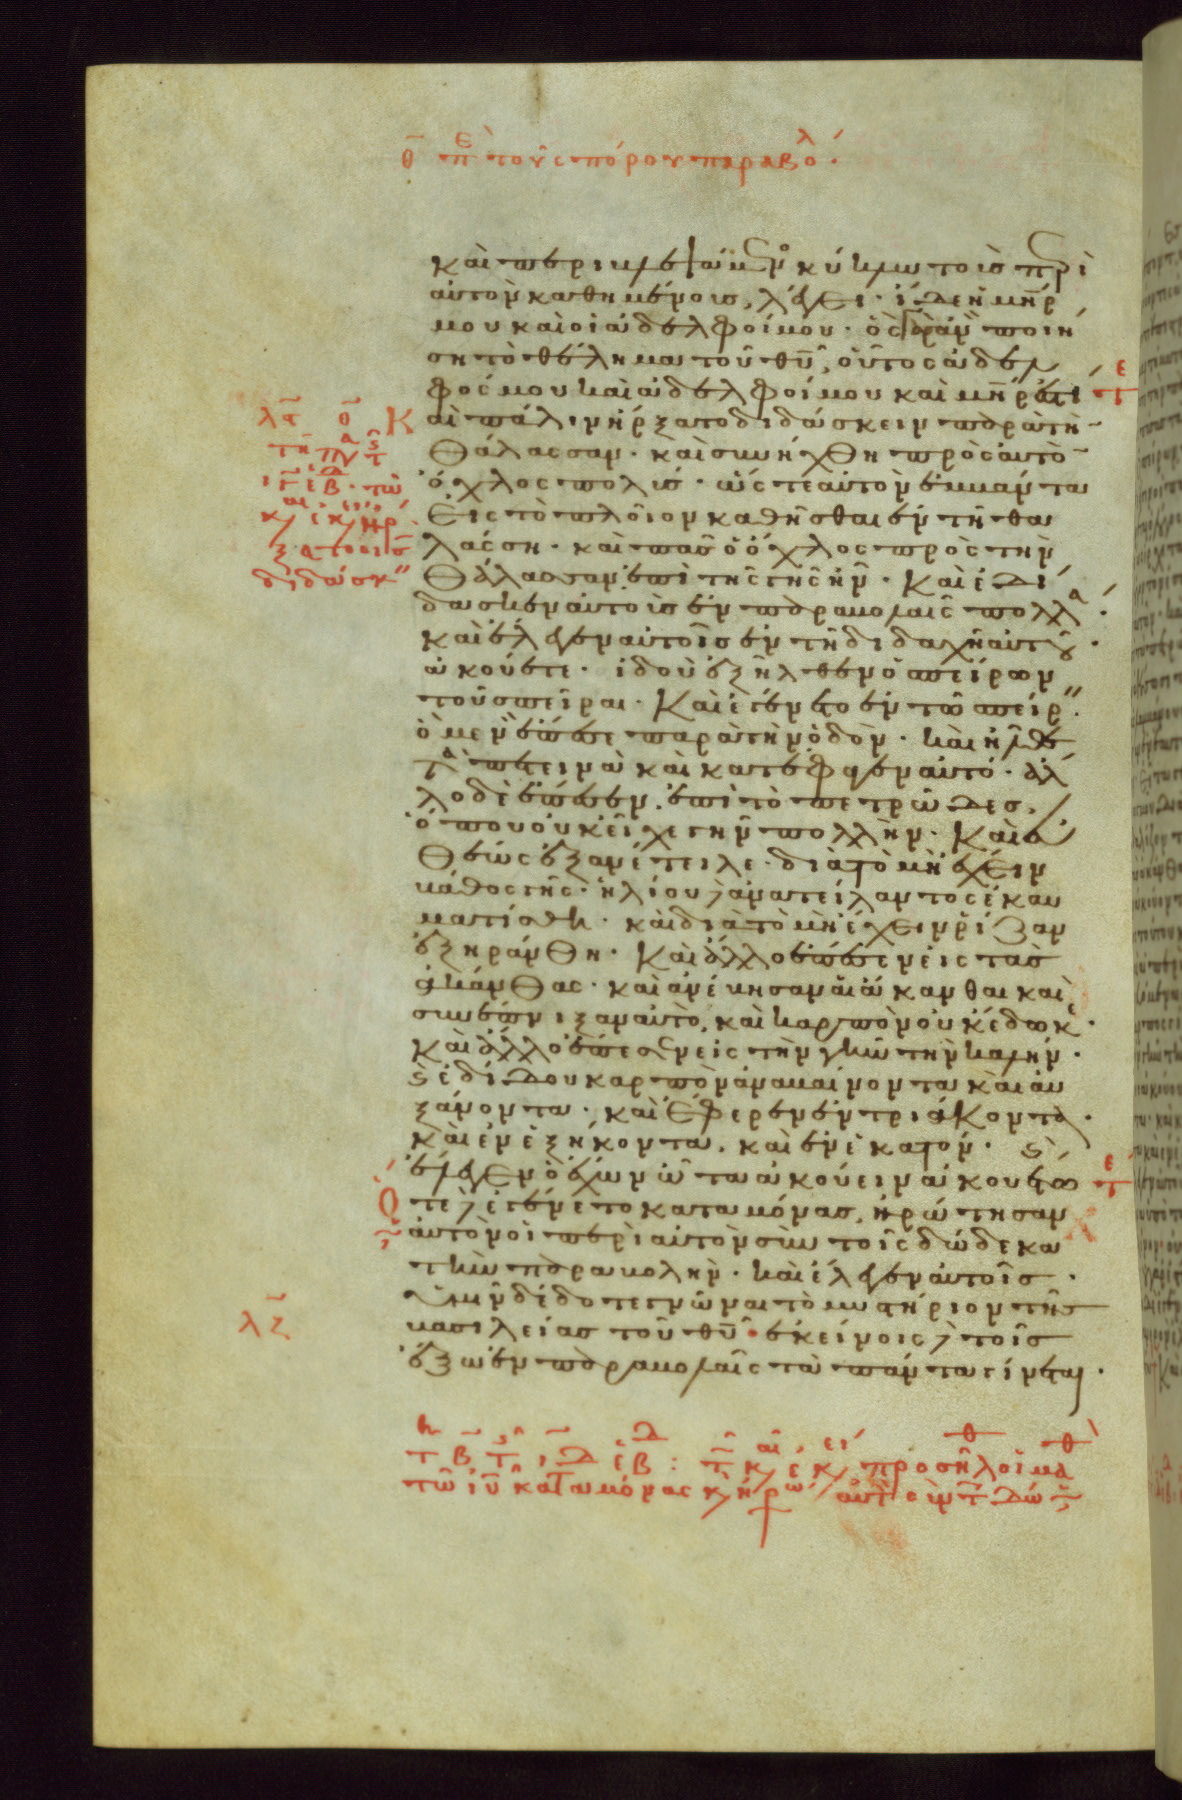 θ πε τοῦ σπόρου παραβολ
καὶ περιβλεψάμενο κύκλω τοὺσ περὶ
αὐτὸν καθημένουσ, λέγει· ἴδε ἡ μηρ
μου καὶ οἱ ἀδελφοί μου· ὃς γὰρ ἂν ποιή
ση τὸ θέλημα τοῦ θυ, οὗτος ἀδελ
φός μου καὶ ἀδελφοί μου καὶ μηρ ἐστί
Καὶ πάλιν ἤρξατο διδάσκειν παρὰ τὴν
θάλασσαν· καὶ συνήχθη πρὸς αὐτὸ
ὄχλος πολύσ· ὥστε αὐτὸν ἐμβάντα
εἰς τὸ πλοῖον καθῆσθαι ἐν τῆ θα
λάσση· καὶ πᾶσ ὁ ὄχλος πρὸς τὴν
θάλασσαν ἐπὶ τῆς γῆς ἦν· Καὶ ἐδί
δασκεν αὐτοὺσ ἐν παραβολαῖς πολλα·
καὶ ἔλεγεν αὐτοῖσ ἐν τῆ διδαχῆ αὐτοῦ·
ἀκούετε· ἰδοὺ ἐξῆλθεν ὁ σπείρων
τοῦ σπεῖραι· Καὶ ἐγένετο ἐν τῶ σπείρ
ὃ μὲν ἔπεσε παρὰ τὴν ὁδὸν· καὶ ἦλθε
τὰ πετεινὰ καὶ κατέφαγεν αὐτό· ἄλ
λο δὲ ἔπεσεν ἐπὶ τὸ πετρῶδεσ,
ὅπου οὐκ εἶχε γῆν πολλὴν· Καὶ εὐ
θέως ἐξανέτειλε· διὰ τὸ μὴ ἔχειν
βάθος γῆς· ἡλίου δὲ ἀνατείλαντος ἐκαυ
ματίσθη· καὶ διὰ τὸ μὴ ἔχειν ῥίζαν
ἐξηράνθη· Καὶ ἄλλο ἔπεσεν εἰς τὰσ
ἀκάνθας· καὶ ἀνέβησαν αἱ ἄκανθαι καὶ
συνέπνιξαν αὐτὸ, καὶ καρπὸν οὐκ ἔδωκε·
Καὶ ἄλλο ἔπεσεν εἰς τὴν γῆν τὴν καλήν·
καὶ ἐδίδου καρπὸν ἀναβαίνοντα καὶ αὐ
ξάνοντα· καὶ ἔφερεν ἐν τριάκοντα·
Καὶ ἐν ἑξήκοντα, καὶ ἐν ἑκατόν· καὶ
ἔλεγεν ὁ ἔχων ὦτα ἀκούειν ἀκουέτω
Ὅτε δὲ ἐγένετο καταμόνασ, ἠρώτησαν
αὐτὸν οἱ περὶ αὐτὸν σὺν τοῖς δώδεκα
τὴν παραβολὴν· καὶ ἔλεγεν αὐτοῖσ·
ὑμῖν δέδοται γνῶναι τὸ μυστήριον τῆσ
βασιλείασ τοῦ θυ· ἐκείνοις δὲ τοῖσ
ἔξω ἐν παραβολαῖς τὰ πάντα γίνεται·
λϛ